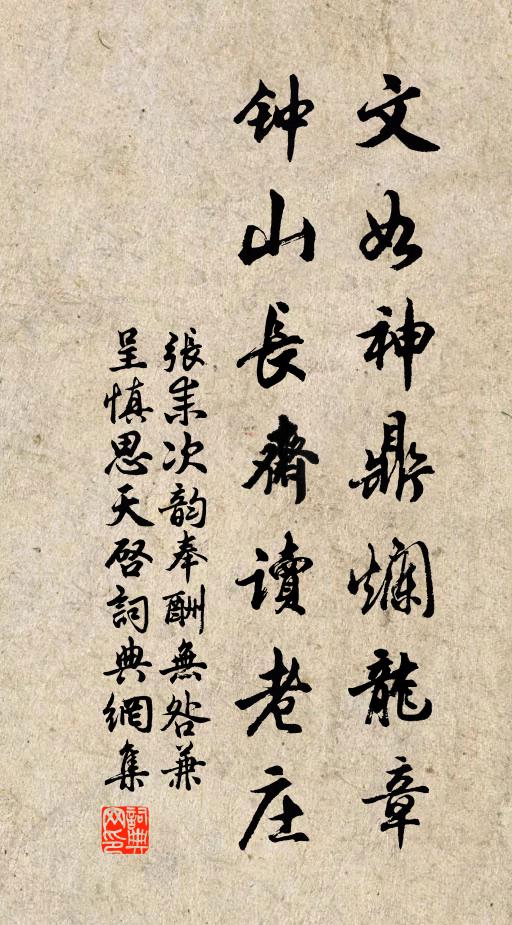 文如神鼎爛龍章
钟山長齋讀老庄
張耒次韵奉酬無咎兼
呈慎思天啓詞典網集
詞典
网印